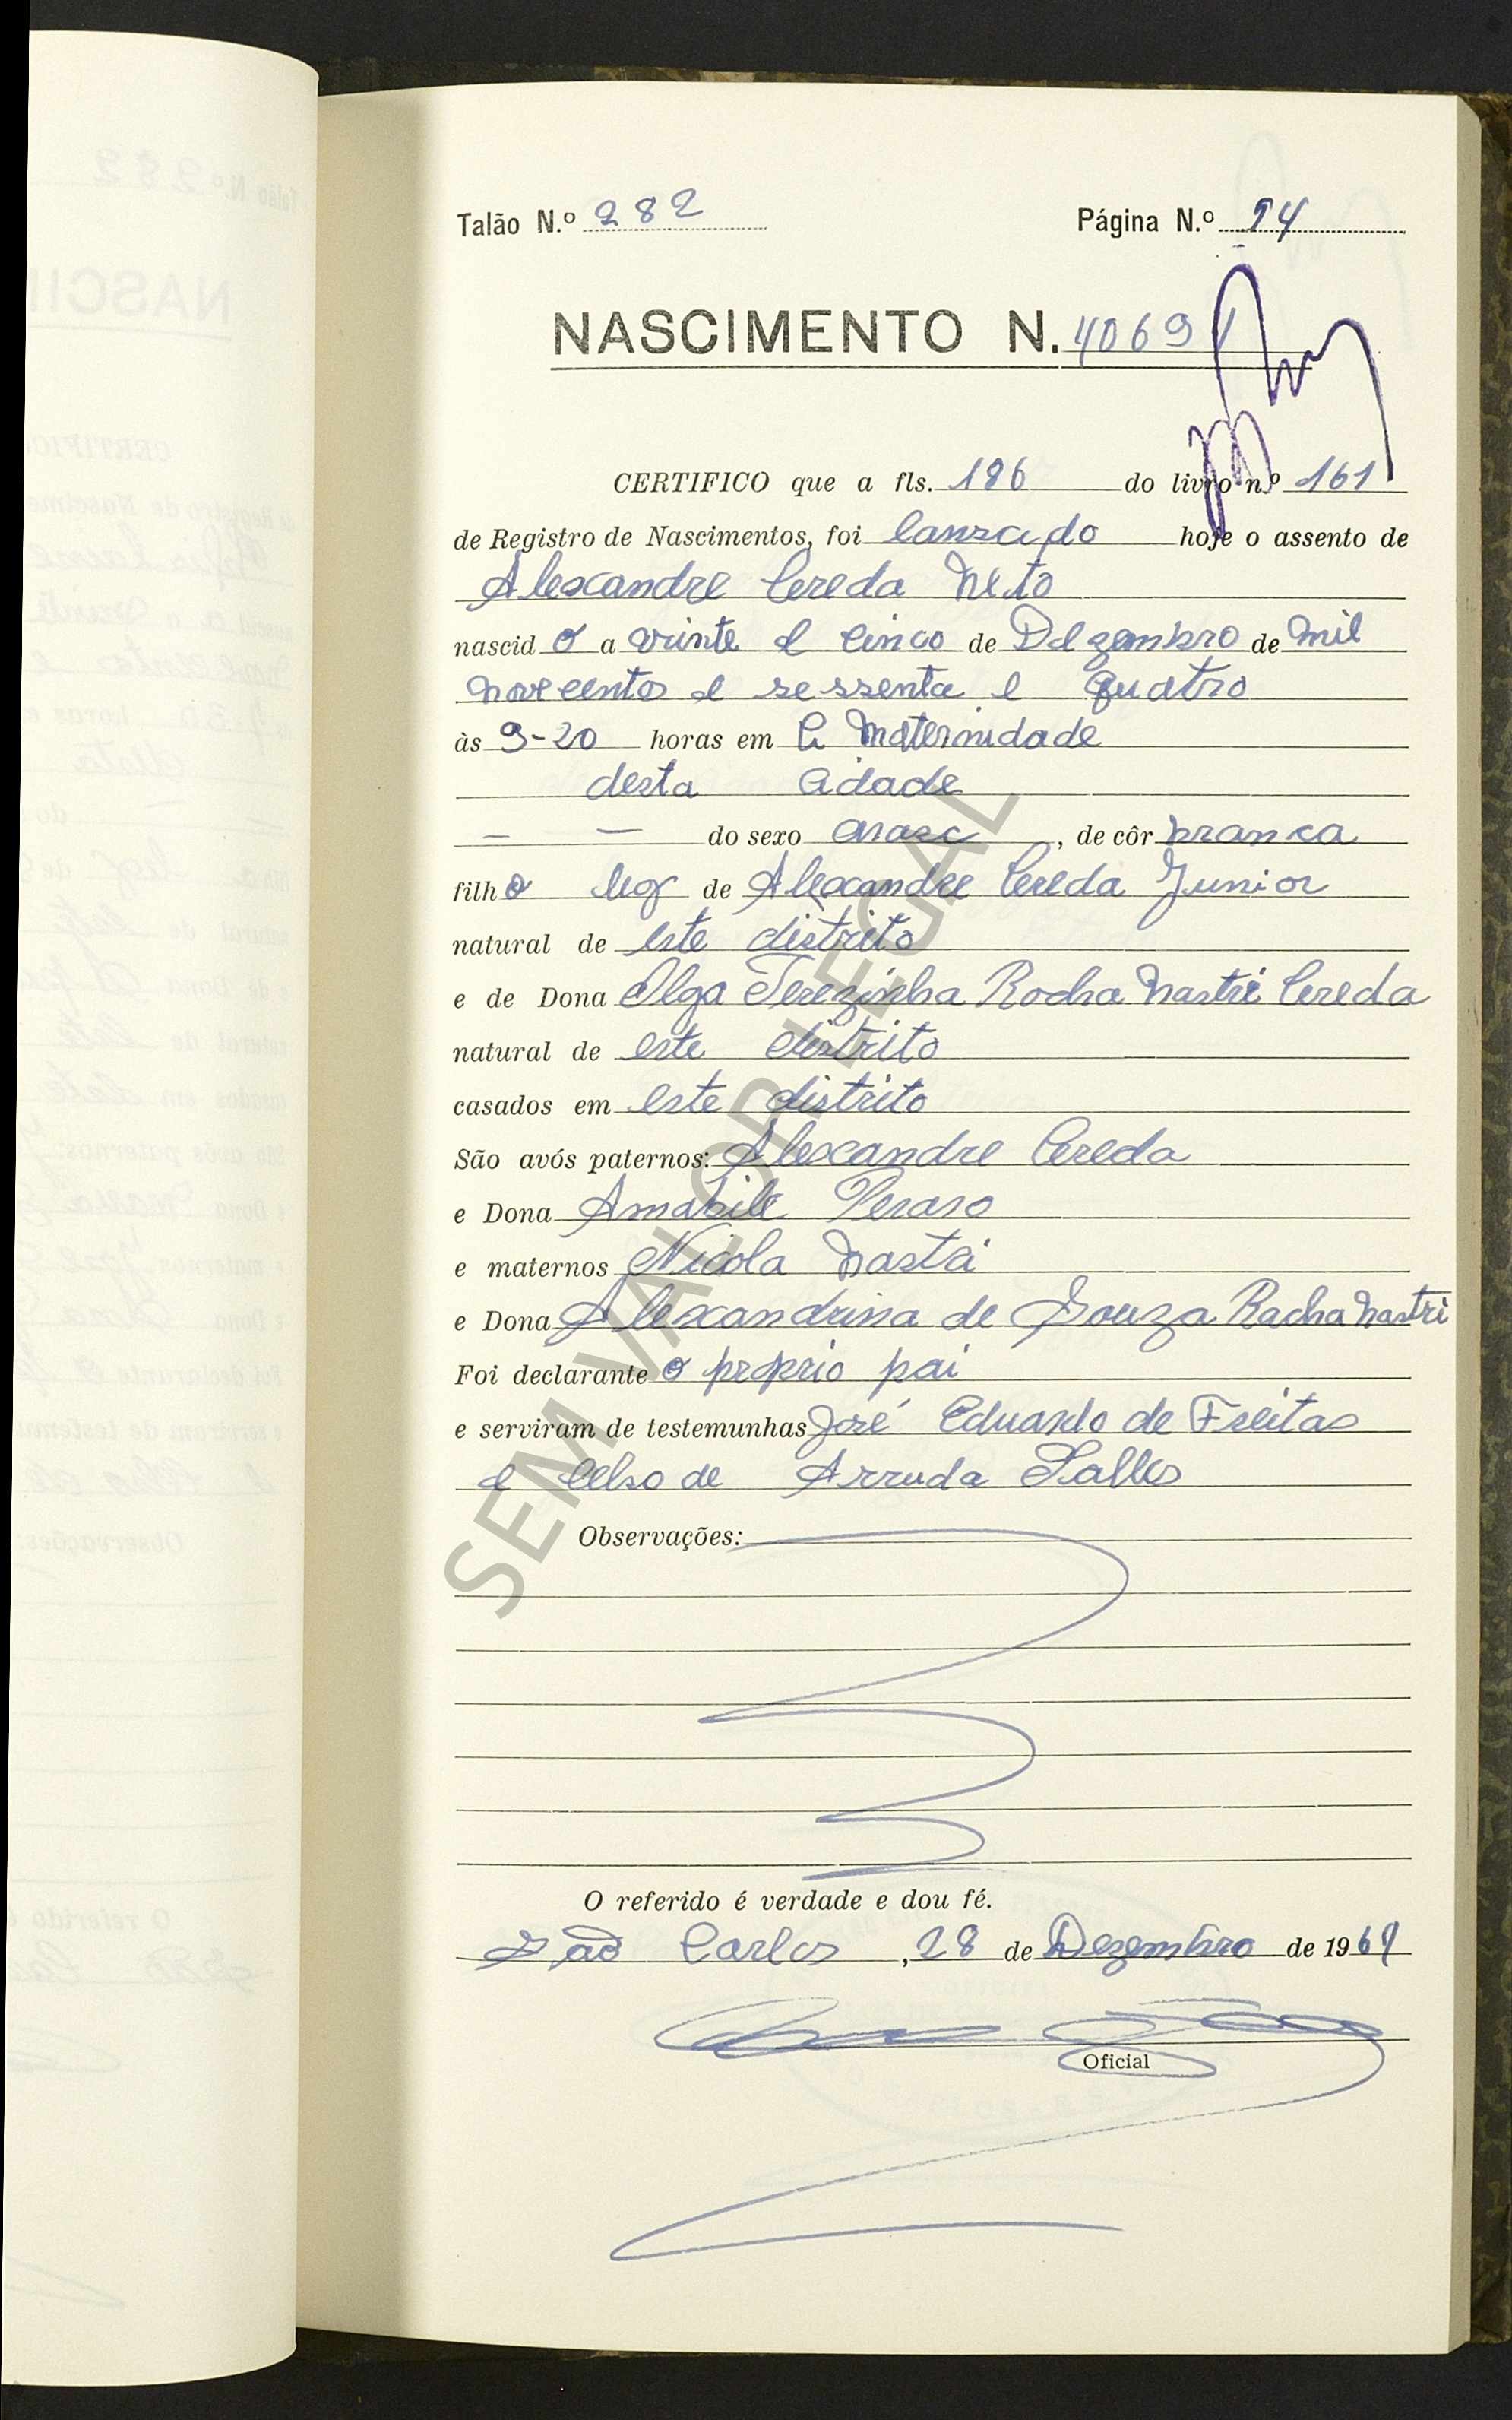 Talão N.º 282 Página N.º 94
NASCIMENTO N. 40691
CERTIFICO que a fls. 186 do livro n.º 161
de Registro de Nascimentos, foi lanzado hoje o assento de
Alexandre Cereda Neto
nascid o a vinte e cinco de Dezembro de mil
novecentos e sessenta e quatro
às 9-20 horas em a Maternidade
desta cidade
— — do sexo masc, de côr branca
filho leg de Alexandre Cereda Junior
natural de este distrito
e de Dona Olga Terezinha Rocha Nastri Cereda
natural de este distrito
casados em este distrito
São avós paternos: Alexandre Cereda
e Dona Amabile Peraso
e maternos Nicola Nastri
e Dona Alexandrina de Souza Racha Nastri
Foi declarante o proprio pai
e serviram de testemunhas José Eduardo de Freitas
e Celso de Arruda Salles
Observações:
O referido é verdade e dou fé.
São Carlos, 28 de Dezembro de 1964
Oficial
SEM VALOR LEGAL